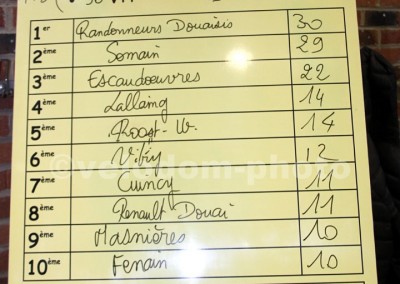 1er Randonneurs Douaisis 30
2ème Somain 29
3ème Escaudoeuvres 22
4ème Lallaing 14
5ème Roost-W. 14
6ème Vitry 12
7ème Cuincy 11
8ème Renault Douai 11
9ème Masnières 10
10ème Fenain 10
©verodom-photo